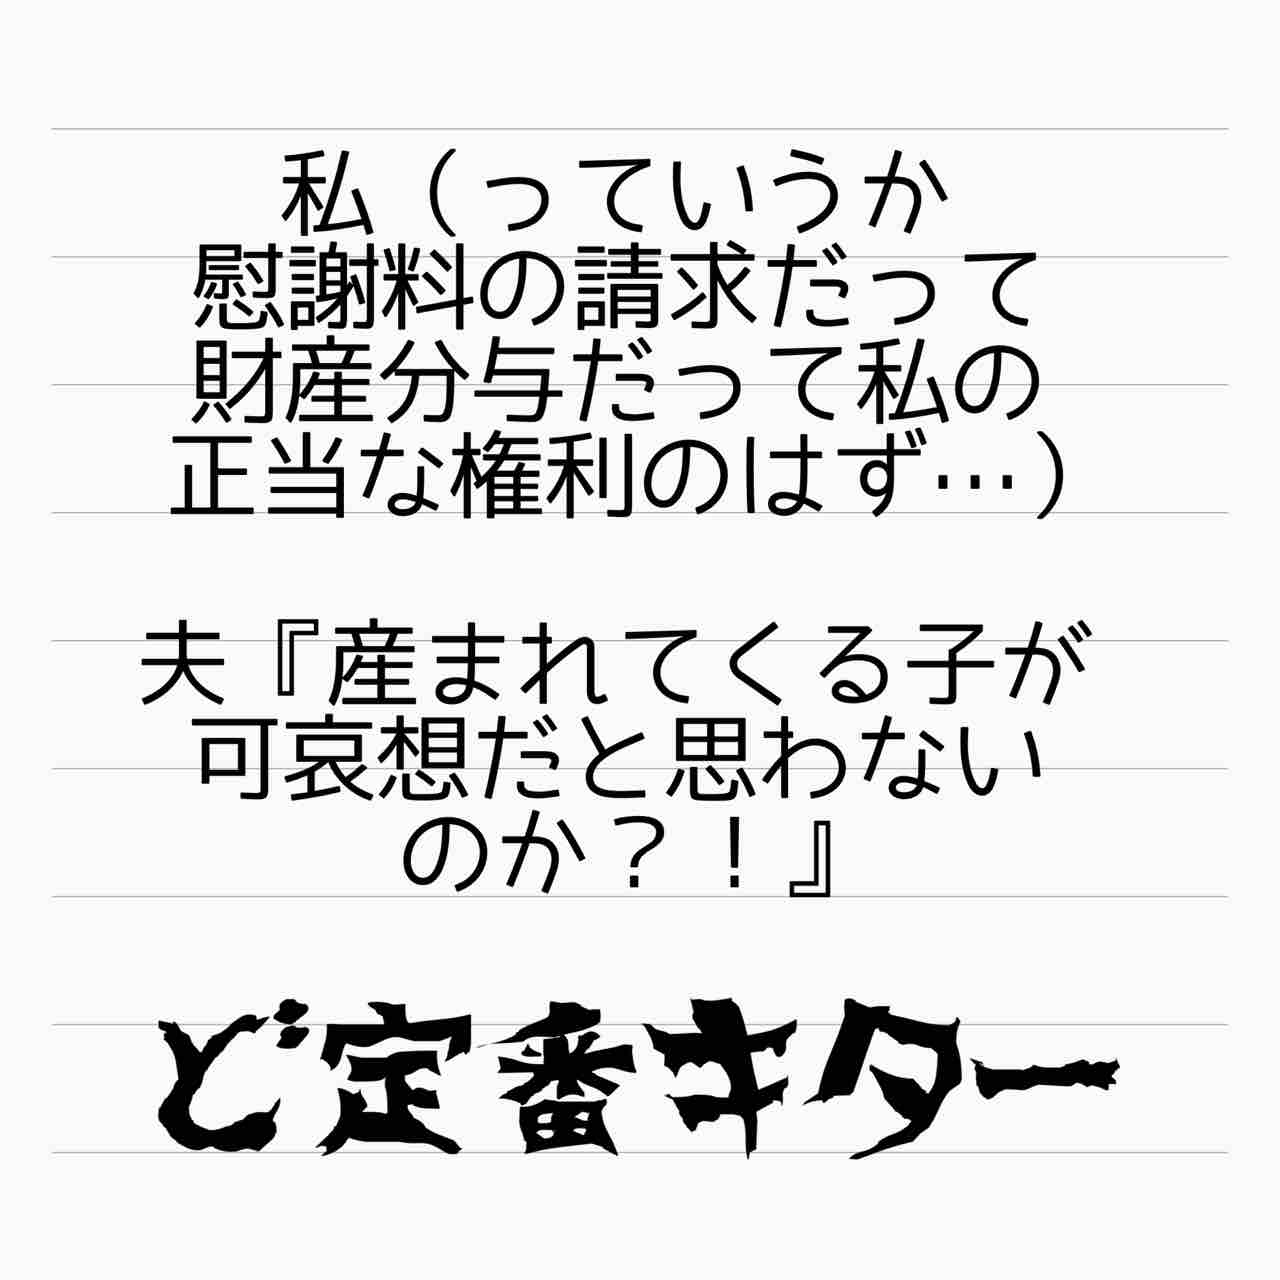 私（っていうか
慰謝料の請求だって
財産分与だって私の
正当な権利のはず…）
夫『産まれてくる子が
可哀想だと思わない
のか？！』
ど定番キター